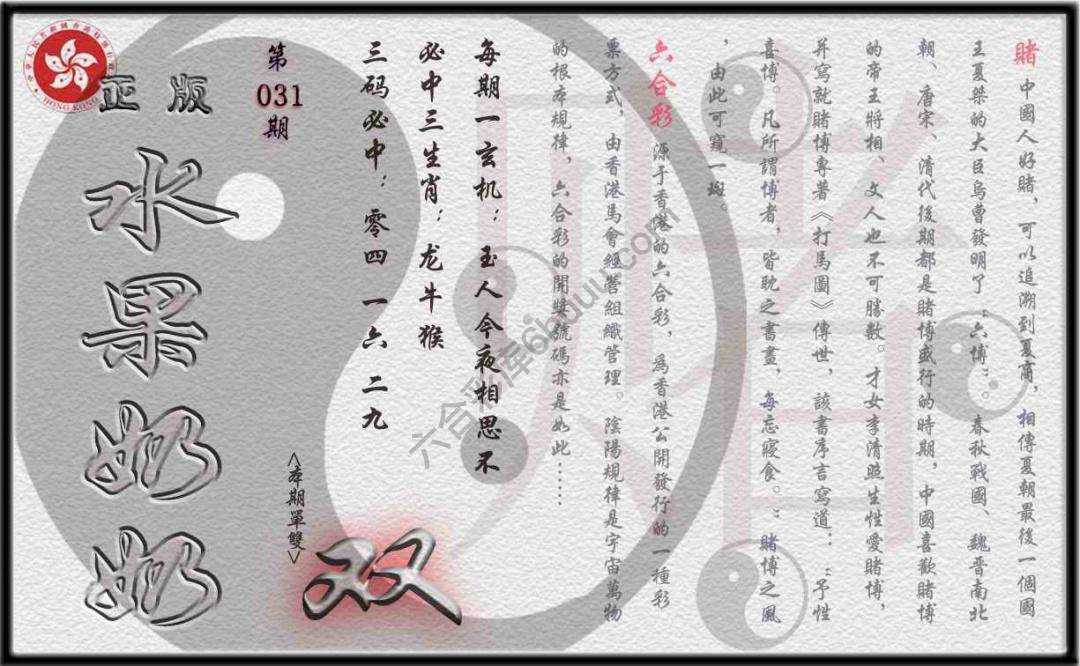 賭 中國人好賭，可以追溯到夏商，相傳夏朝最後一個國
王夏桀的大臣烏曹發明了：六博：。春秋戰國、魏晉南北
朝、唐宋、清代後期都是賭博盛行的時期，中國喜歡賭博
的帝王將相、文人也不可勝數。才女李清照生性愛賭博，
并寫就賭博專著《打馬圖》傳世，該書序言寫道：：予性
喜博。凡所謂博者，皆耽之書畫，每忘寢食。：賭博之風
，由此可窺一斑。
六合彩 源于香港的六合彩，為香港公開發行的一種彩
票方式，由香港馬會經營組織管理。陰陽規律是宇宙萬物
的根本規律，六合彩的開獎號碼亦是如此……
每期一玄机：玉人今夜相思不
必中三生肖：龙牛猴
三码必中：零四 一六 二九
第
031
期
<本期單雙>
双
正版
水果奶奶
HONG KONG
六合彩库66uuu.com